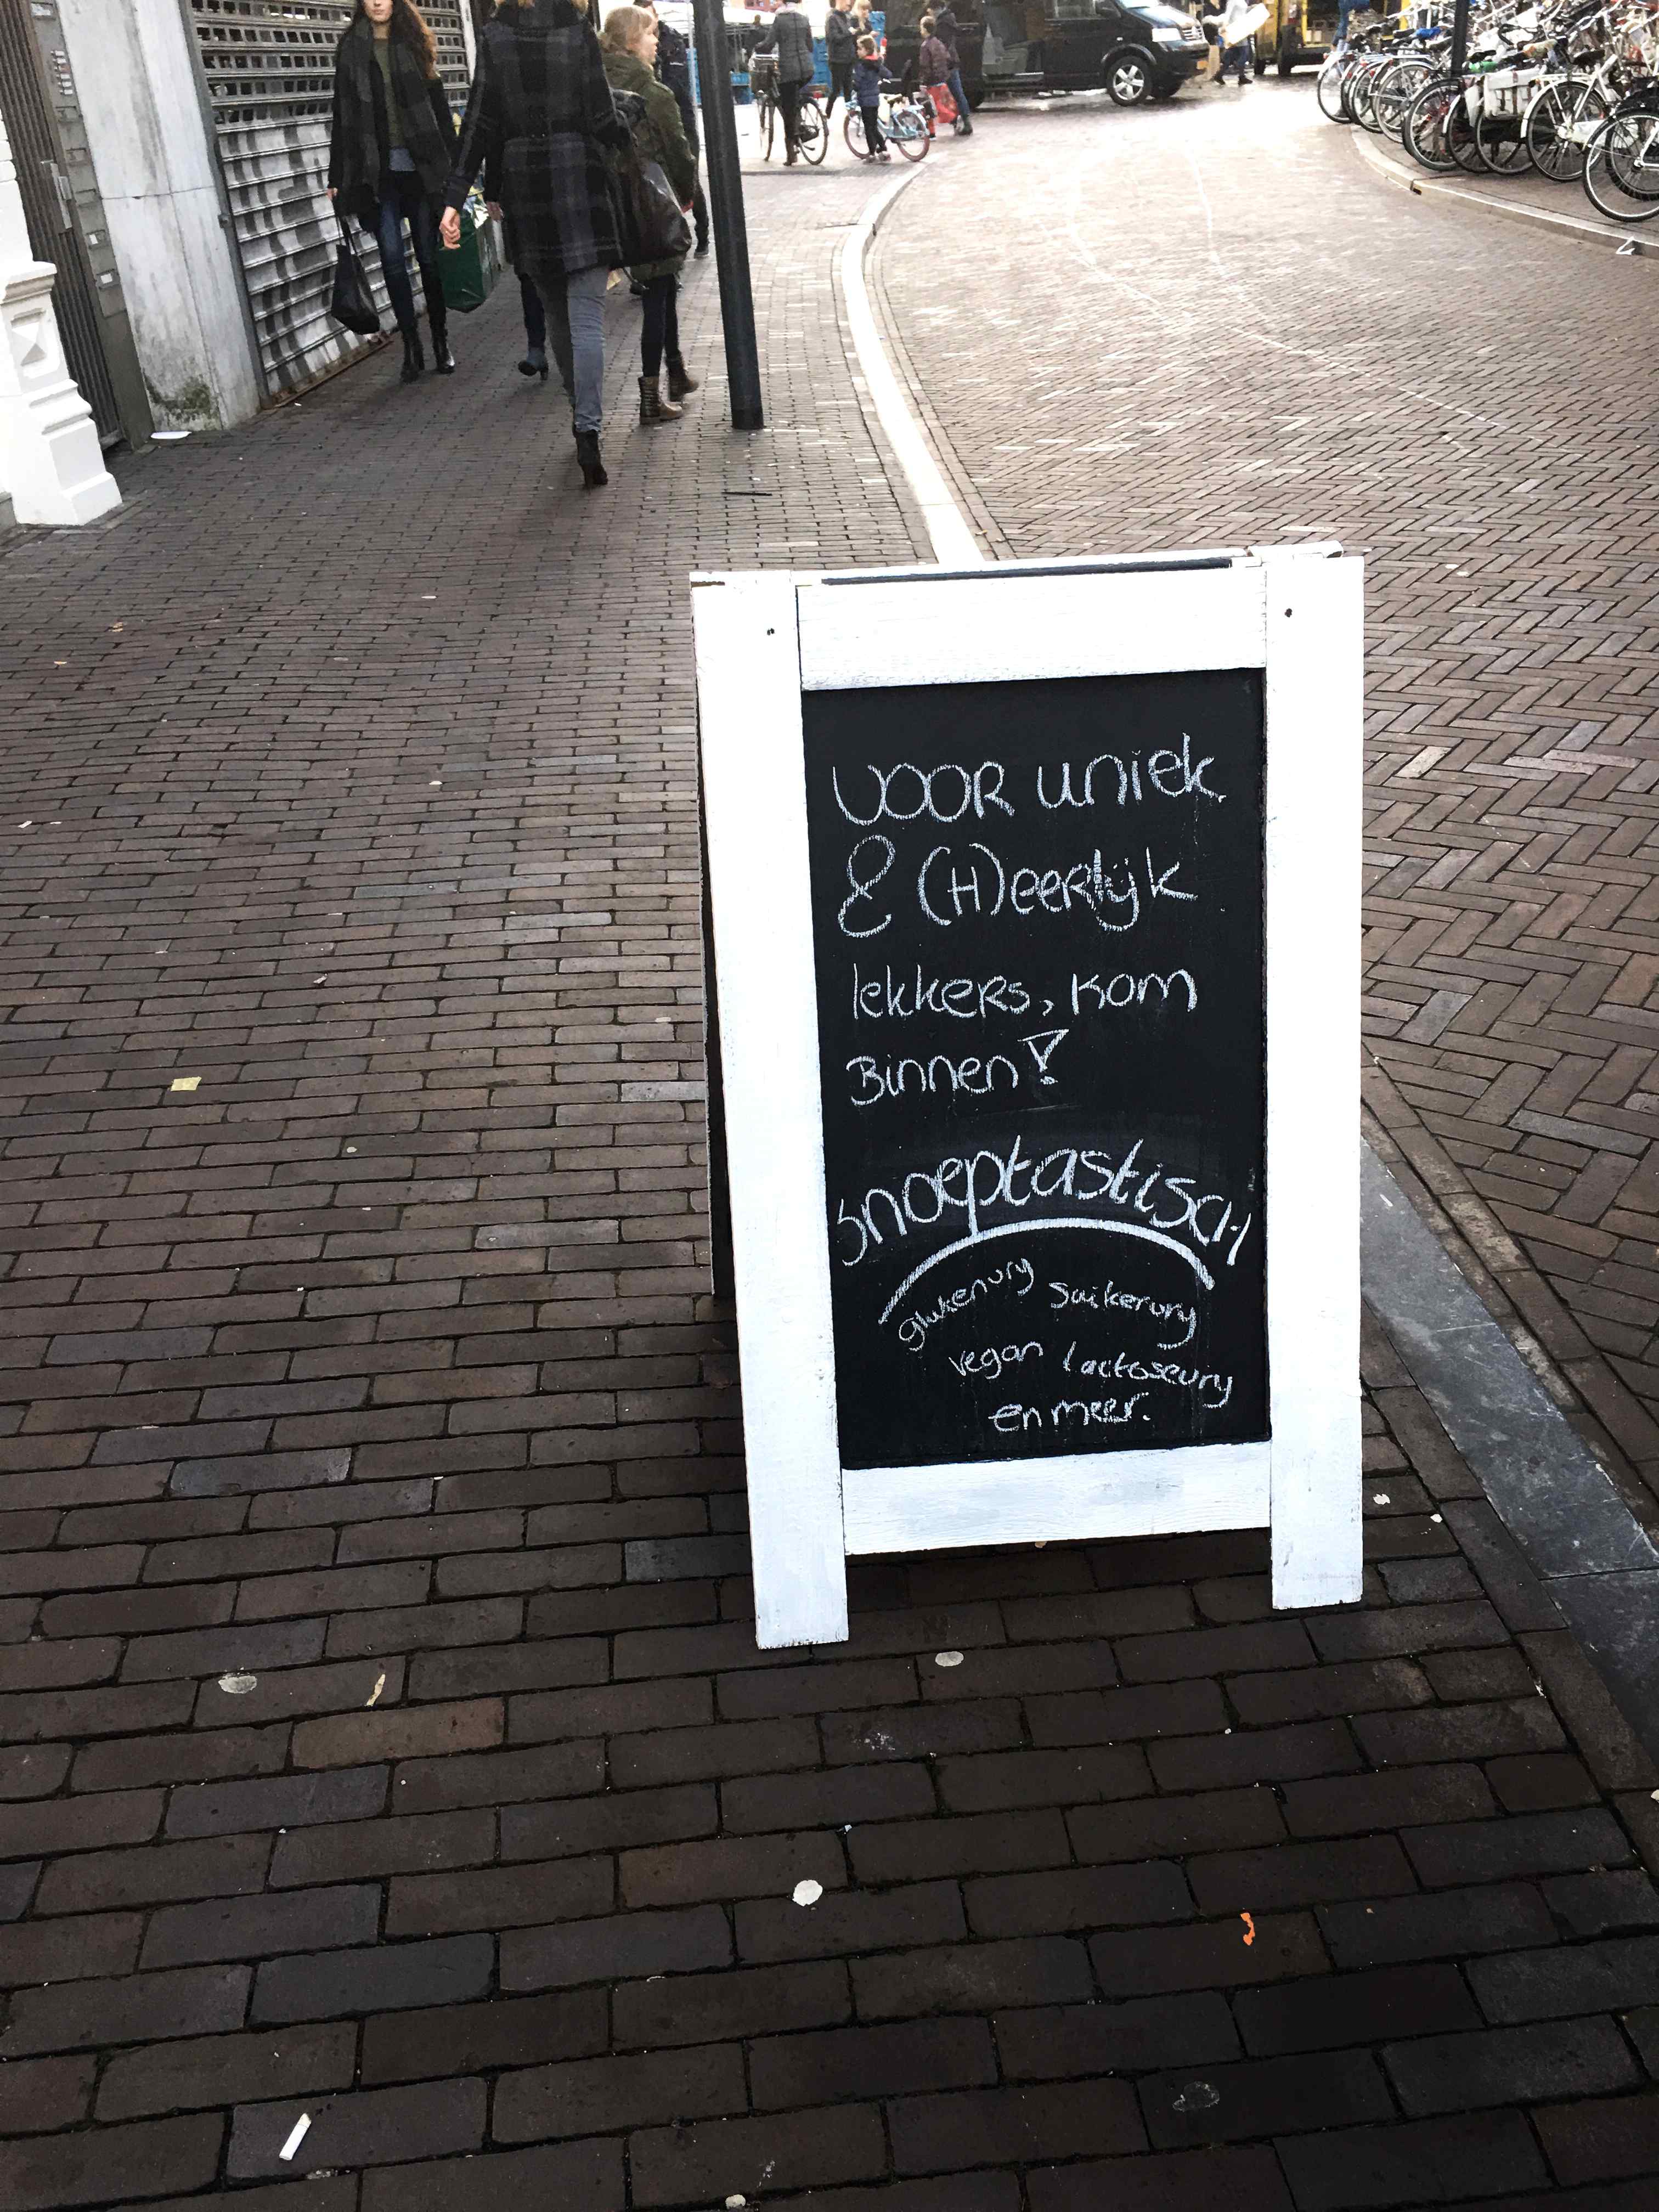 VOOR uniek
& (H)eerlijk
lekkers, kom
Binnen!
Snoeptastisch
glutenvrij suikervrij
vegan lactosevrij
en meer.